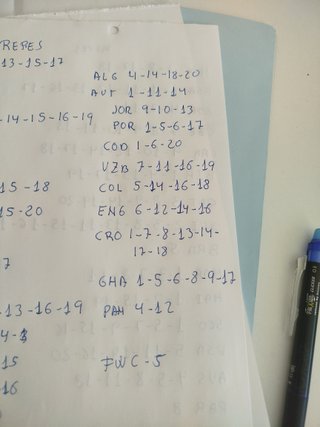 REPES
13-15-17
ALG 4-14-18-20
AUT 1-11-14
JOR 9-10-13
-14-15-16-19
POR 1-5-6-17
COD 1-6-20
UZB 7-11-16-19
15-18
COL 5-14-16-18
15-20
ENG 6-12-14-16
CRO 1-7-8-13-14-
17-18
7
GHA 1-5-6-8-9-17
13-16-19
PAN 4-12
15
FWC-5
16